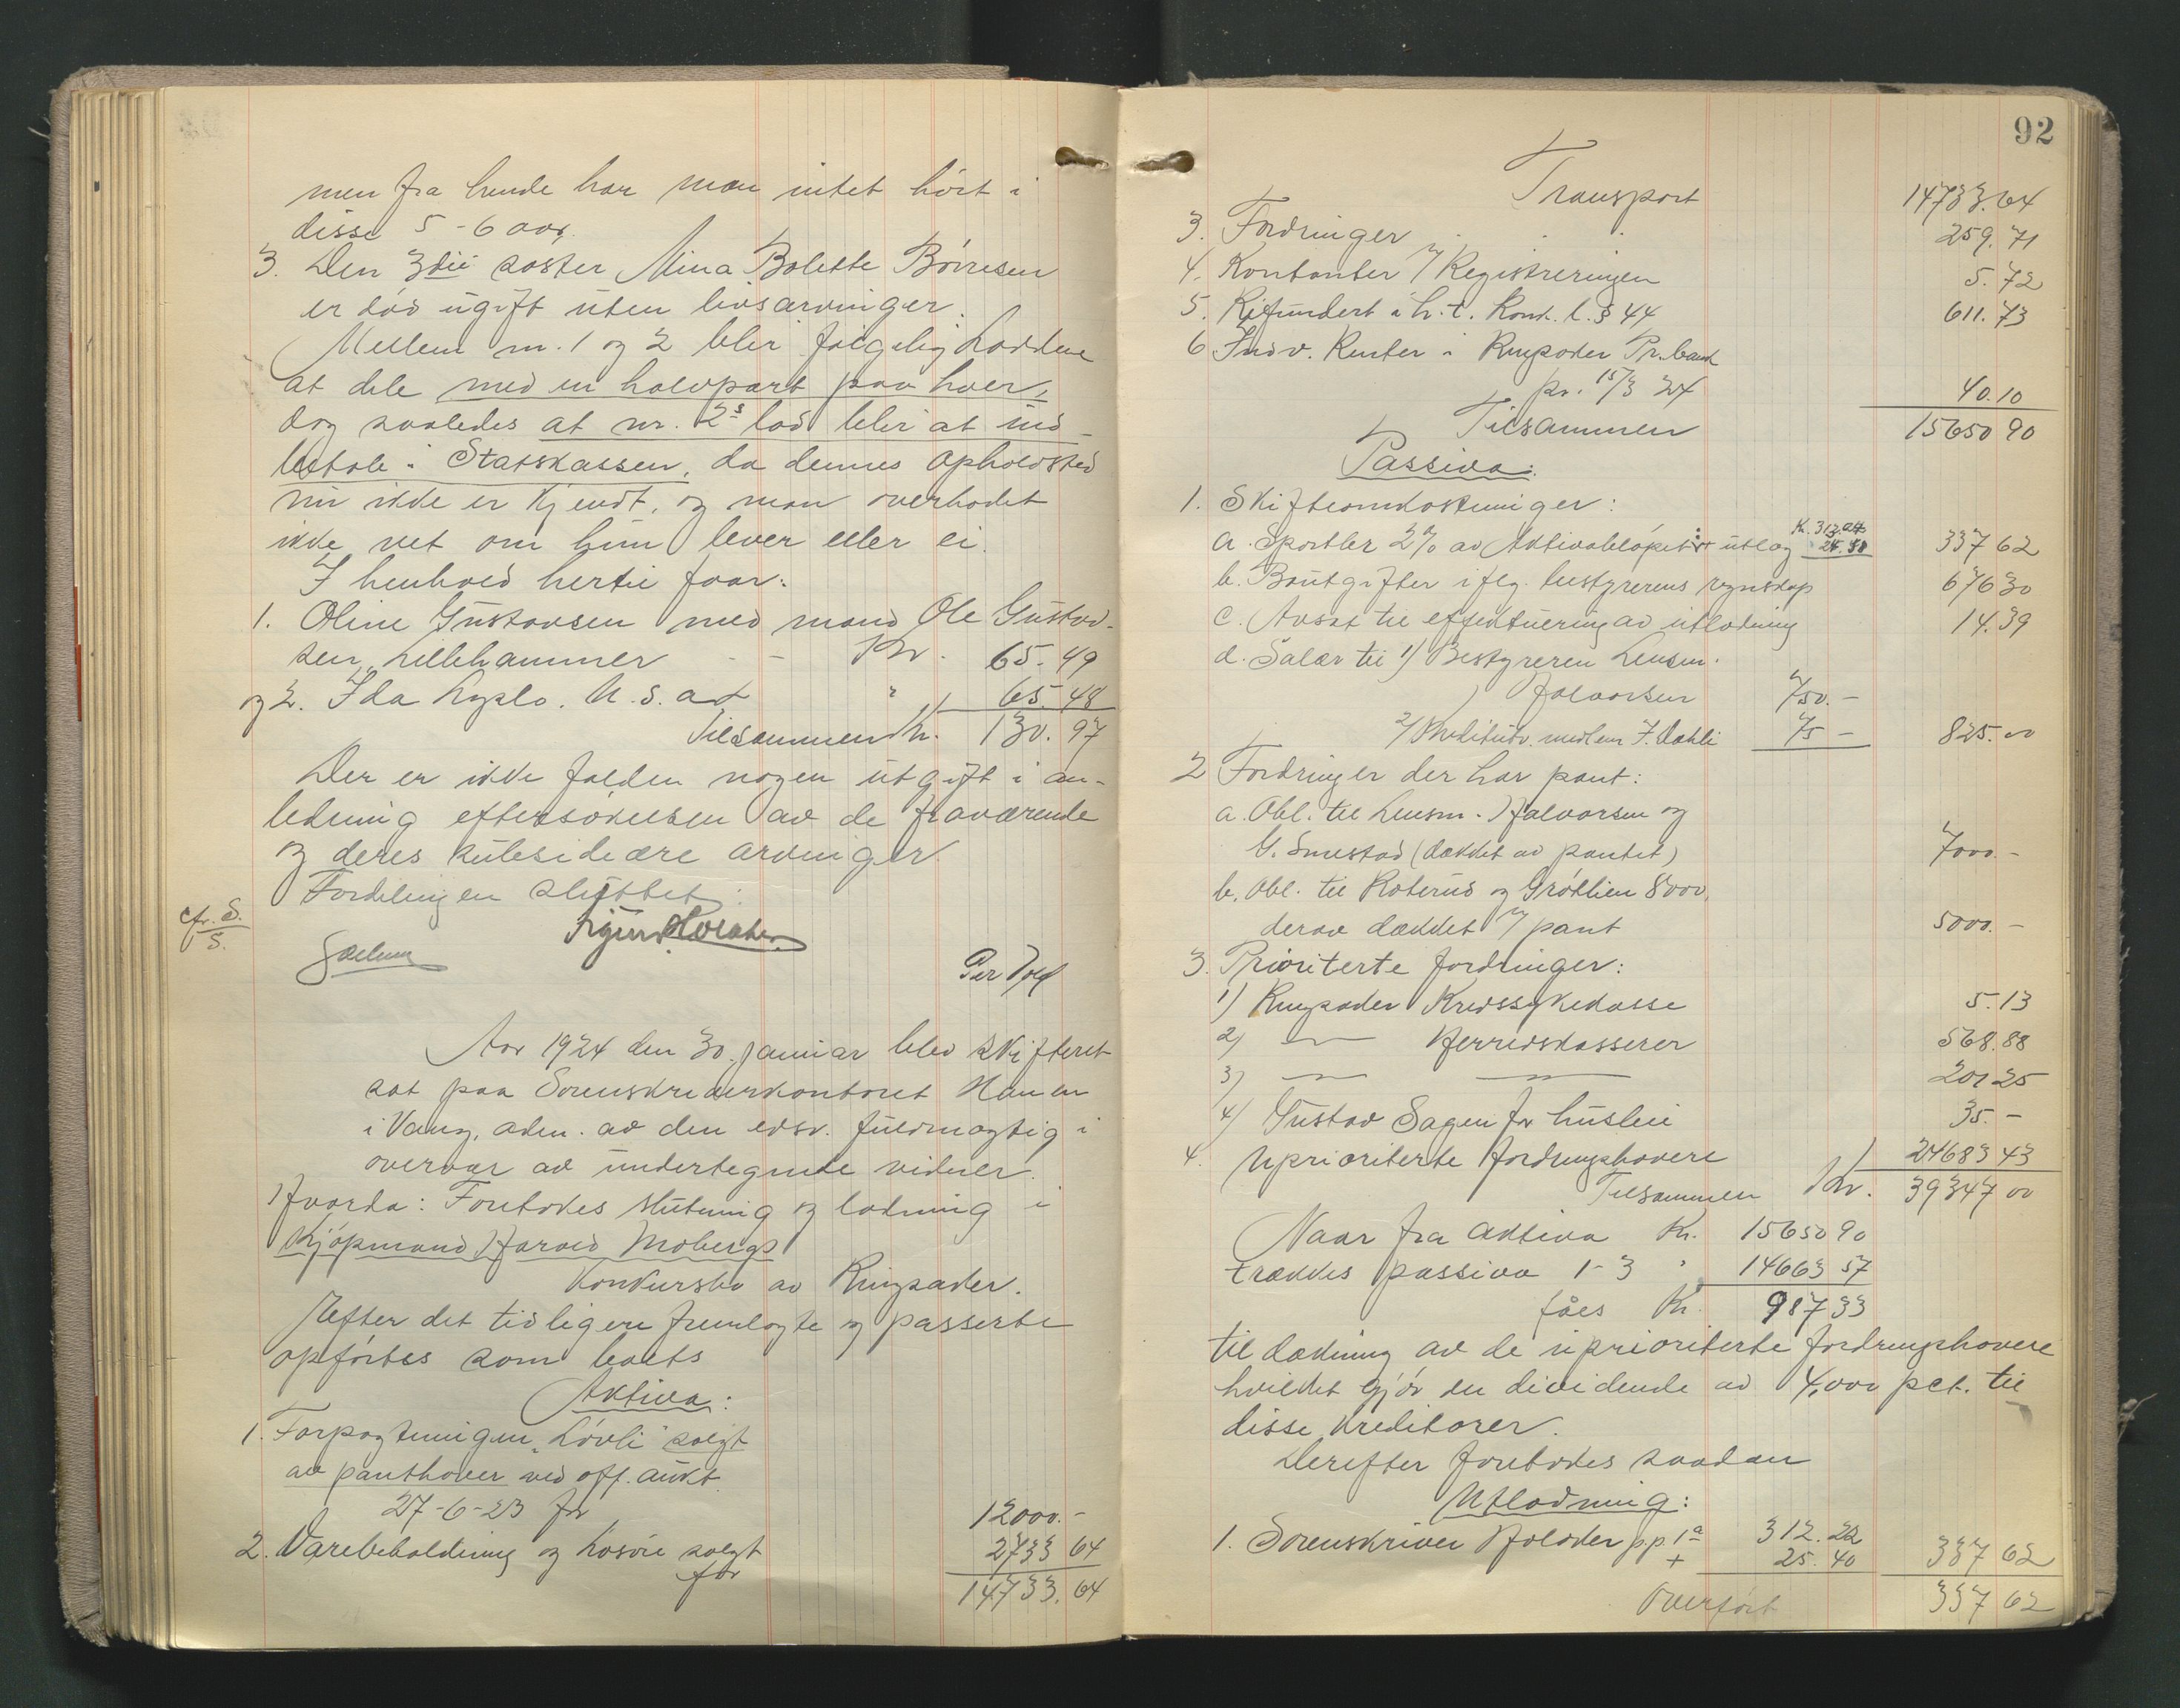 men fra hende har man intet hört i
disse 5-6 aar.
3. Den 3die søster Mina Bolette Börresen
er död ugift uten livsarvinger.
Mellem nr. 1 og 2 blir fölgelig Loddene
at dele med en halvpart paa hver,
dog saaledes at nr. 2s lod blir at ind-
betale i Statskassen, da dennes opholdssted
nu ikke er kjendt, og man overhodet
ikke vet om hun lever eller ei.
I henhold hertil faar:
1. Oline Gustavsen med mand Ole Gustav-
sen, Lillehammer - - Kr. 65.49
og 2. Ida U.S.a. " 65.48
Tilsammen Kr. 130.97
Der er ikke falden nogen utgift i an-
ledning eftersökelsen av de fraværende
og deres arvinger.
Fordelingen sluttet.
cfr. S.
S.
Aar 1924 den 30. januar blev skifteret
sat paa Sorenskriverkontoret
i Vang, adm. av den edsv. fuldmægtig i
overvær av undertegnede vidner.
Hvorda: Foretokes slutning og lodning i
Kjöpmand Harald Mobergs
Konkursbo av Ringsaker.
Efter det tidligere fremlagte og passerte
opförtes som boets
Aktiva:
1. Forpagtningen "Lövli" solgt
av panthaver ved off. aukt.
27-6-23 for 12000.-
2. Varebeholdning og Lösöre solgt
for 2733 64
14733.64
92
Transport 14733.64
3. Fordringer . . . 259.71
4. Kontanter v/ Registreringen 5.72
5. Refundert i h.t. Konk. l. § 44 611.73
6. Indv. Renter i Ringsaker Pr.bank
pr. 15/3 24 40.10
Tilsammen 15650 90
Passiva:
1. Skifteomkostninger:
a. Sportler 2% av Aktivabelöpet + utlæg 337 62
b. Boutgifter iflg. bestyrerens regnskap 676 30
c. Avsat til effektuering av utlodning 14.39
d. Salær til 1) Bestyreren Lensm.
Halvorsen 750.-
2) Kreditudv. medlem J. Dahli 75 - 825.00
2 Fordringer der har pant:
a. Obl. til Lensm. Halvorsen og
G. Smestad (dækket av pantet) 7000.-
b. Obl. til Roterud og Gröthien 8000,
derav dækket v/ pant 5000.-
3. Prioriterte fordringer:
1) Ringsaker Kredssykekasse 5.13
2) — Herredskasserer 568.88
3) — — 201 25
4) Gustav Sagen for husleie 35.-
4. Uprioriterte fordringshavere 24683 43
Tilsammen Kr. 39347 00
Naar fra aktiva Kr. 15650 90
trækkes passiva 1-3 " 14663 57
fåes Kr. 987 33
til dækning av de uprioriterte fordringshavere
hvilket gjör en dividende av 4,000 pct. til
disse kreditorer.
Derefter foretokes saadan
Utlodning:
1. Sorenskriver p.p. 1a 312.22
+ 25.40 337 62
Overfört 337 62